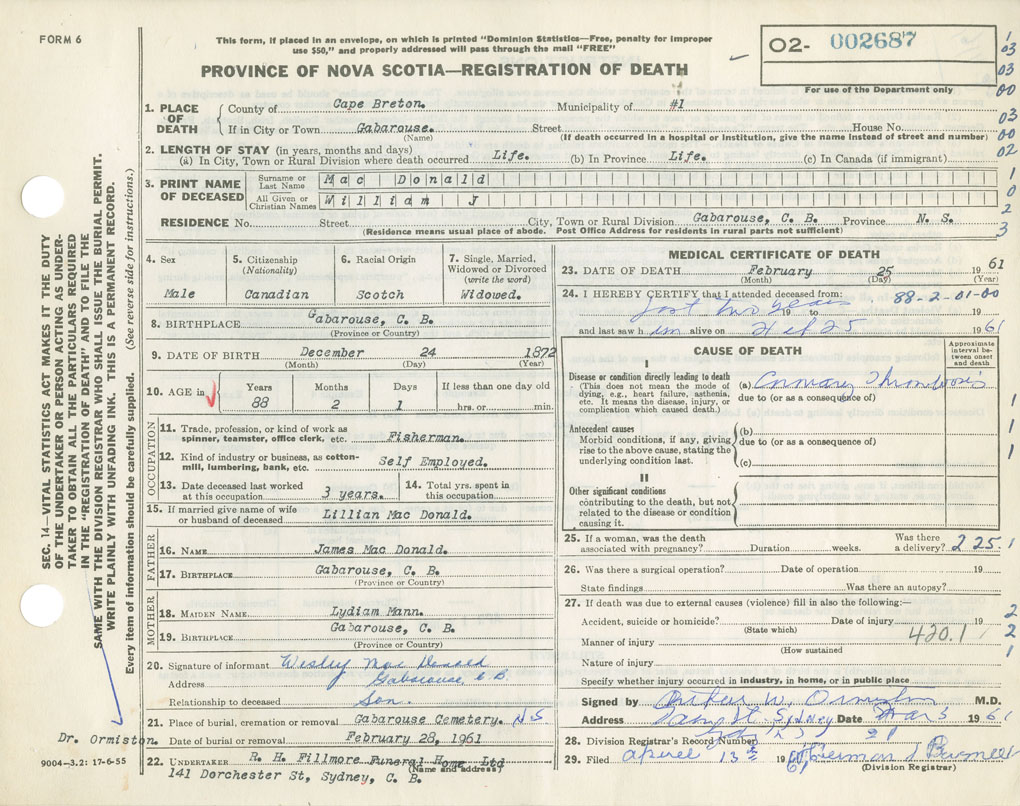 FORM 6
This form, if placed in an envelope, on which is printed "Dominion Statistics—Free, penalty for improper
use $50," and properly addressed will pass through the mail "FREE"
O2- 002687
For use of the Department only
PROVINCE OF NOVA SCOTIA—REGISTRATION OF DEATH
1. PLACE OF DEATH
County of Cape Breton. Municipality of #1
If in City or Town Gabarouse. Street House No.
(Name) (If death occurred in a hospital or institution, give the name instead of street and number)
2. LENGTH OF STAY (in years, months and days)
(a) In City, Town or Rural Division where death occurred Life. (b) In Province Life. (c) In Canada (if immigrant)
3. PRINT NAME OF DECEASED
Surname or Last Name Mac Donald
All Given or Christian Names William J
RESIDENCE No. Street City, Town or Rural Division Gabarouse, C. B. Province N. S.
(Residence means usual place of abode. Post Office Address for residents in rural parts not sufficient)
4. Sex
Male
5. Citizenship
(Nationality)
Canadian
6. Racial Origin
Scotch
7. Single, Married,
Widowed or Divorced
(write the word)
Widowed.
8. BIRTHPLACE Gabarouse, C. B.
(Province or Country)
9. DATE OF BIRTH December 24 1872
(Month) (Day) (Year)
10. AGE in
Years Months Days If less than one day old
88 2 1 hrs. or min.
OCCUPATION
11. Trade, profession, or kind of work as
spinner, teamster, office clerk, etc. Fisherman.
12. Kind of industry or business, as cotton-
mill, lumbering, bank, etc. Self Employed.
13. Date deceased last worked
at this occupation 3 years.
14. Total yrs. spent in
this occupation
15. If married give name of wife
or husband of deceased Lillian Mac Donald.
FATHER
16. NAME James Mac Donald.
17. BIRTHPLACE Gabarouse, C. B.
(Province or Country)
MOTHER
18. MAIDEN NAME Lydiam Mann.
19. BIRTHPLACE Gabarouse, C. B.
(Province or Country)
20. Signature of informant Wesley Mac Donald
Address Gabarouse C B
Relationship to deceased Son.
21. Place of burial, cremation or removal Gabarouse Cemetery. N S
Date of burial or removal February 28, 1961
22. UNDERTAKER R. H. Fillmore Funeral Home Ltd
(Name and address)
141 Dorchester St, Sydney, C. B.
Dr. Ormiston.
9004-3.2: 17-6-55
MEDICAL CERTIFICATE OF DEATH
23. DATE OF DEATH February 25 1961
(Month) (Day) (Year)
24. I HEREBY CERTIFY that I attended deceased from: 88-2-01-00
last two years 19 to 19
and last saw him alive on 25 1961
CAUSE OF DEATH
Approximate
interval be-
tween onset
and death
I
Disease or condition directly leading to death
(This does not mean the mode of
dying, e.g., heart failure, asthenia,
etc. It means the disease, injury, or
complication which caused death.)
(a) Coronary Thrombosis
due to (or as a consequence of)
Antecedent causes
Morbid conditions, if any, giving
rise to the above cause, stating the
underlying condition last.
(b)
due to (or as a consequence of)
(c)
II
Other significant conditions
contributing to the death, but not
related to the disease or condition
causing it.
25. If a woman, was the death
associated with pregnancy? Duration weeks. Was there
a delivery? 225
26. Was there a surgical operation? Date of operation 19
State findings Was there an autopsy?
27. If death was due to external causes (violence) fill in also the following:—
Accident, suicide or homicide? Date of injury 19
(State which)
Manner of injury 420.1
(How sustained
Nature of injury
Specify whether injury occurred in industry, in home, or in public place
Signed by Arthur W. Ormiston M.D.
Address Sydney Date Mar 3 1961
28. Division Registrar's Record Number 21
29. Filed April 13th 1961
(Division Registrar)
1
03
03
00
03
00
02
1
0
2
3
1
1
1
1
2
2
1
SEC. 14—VITAL STATISTICS ACT MAKES IT THE DUTY
OF THE UNDERTAKER OR PERSON ACTING AS UNDER-
TAKER TO OBTAIN ALL THE PARTICULARS REQUIRED
IN THE "REGISTRATION OF DEATH" AND TO FILE THE
SAME WITH THE DIVISION REGISTRAR WHO SHALL ISSUE THE BURIAL PERMIT.
WRITE PLAINLY WITH UNFADING INK. THIS IS A PERMANENT RECORD.
Every item of information should be carefully supplied. (See reverse side for instructions.)